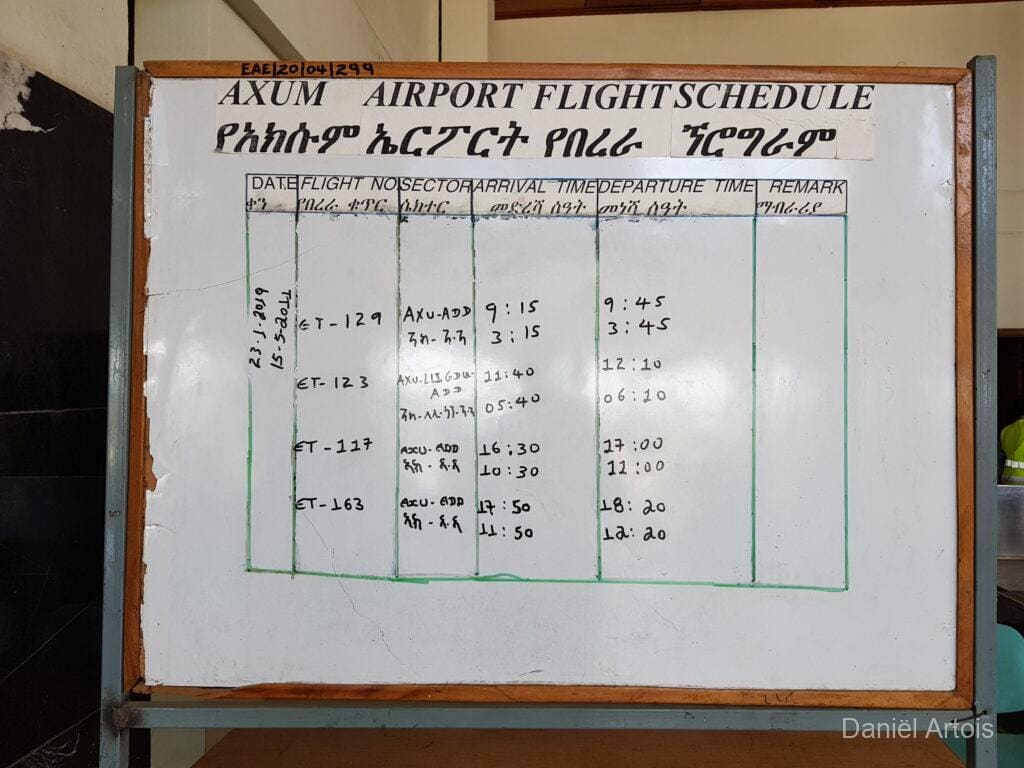 EAE/20/04/299
AXUM AIRPORT FLIGHT SCHEDULE
የአክሱም ኤርፖርት የበረራ ፕሮግራም
DATE FLIGHT NO SECTOR ARRIVAL TIME DEPARTURE TIME REMARK
ቀን የበረራ ቁጥር ሴክተር መድረሻ ሰዓት መነሻ ሰዓት ማብራሪያ
23.1.2019
ET-129 AXU-ADD 9:15 9:45
3:15 3:45
ET-123 11:40 12:10
ADD
05:40 06:10
ET-117 AXU-ADD 16:30 17:00
አክ-አ.አ 10:30 11:00
ET-163 AXU-ADD 17:50 18:20
አክ-አ.አ 11:50 12:20
Daniël Artois